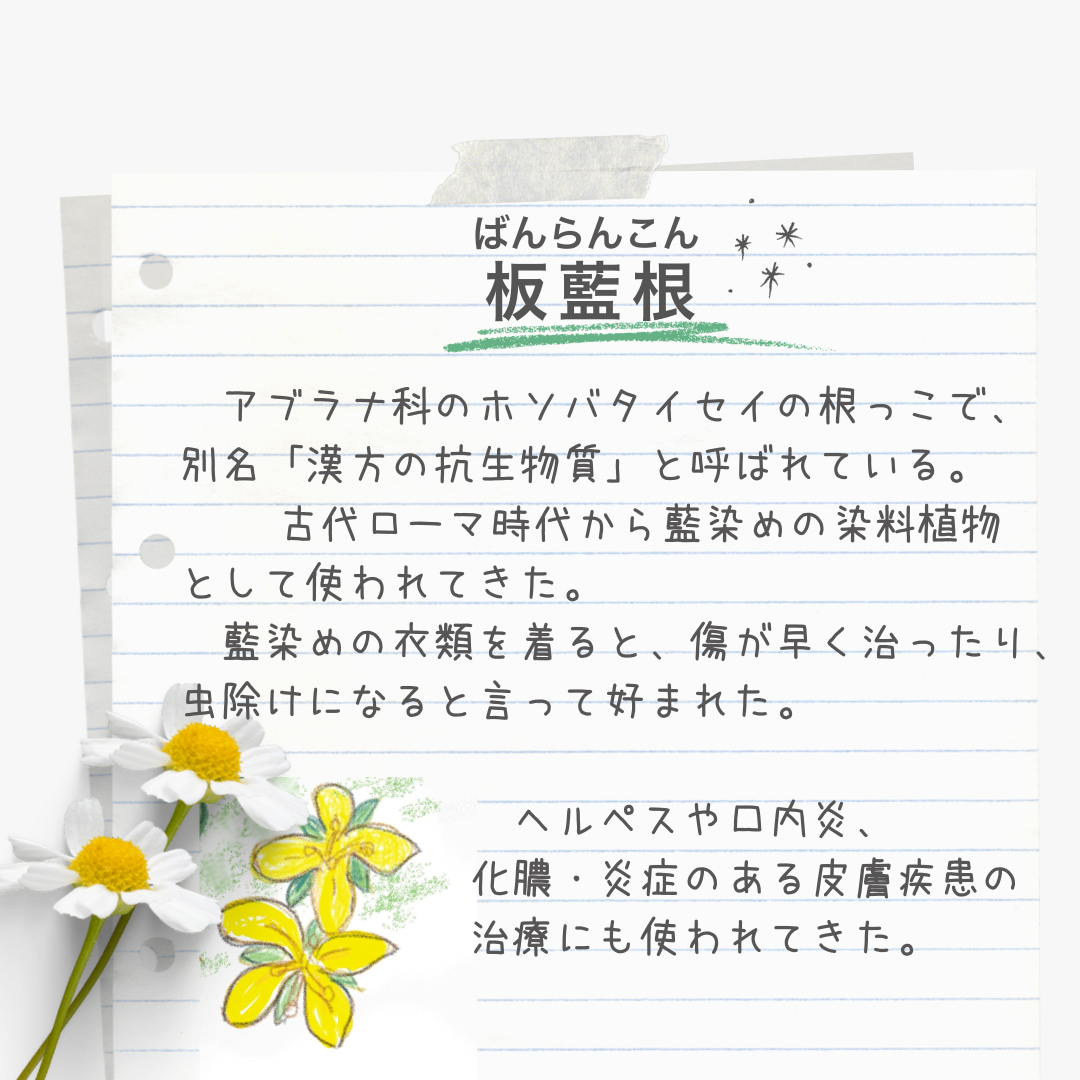 ばんらんこん
板藍根
アブラナ科のホソバタイセイの根っこで、
別名「漢方の抗生物質」と呼ばれている。
古代ローマ時代から藍染めの染料植物
として使われてきた。
藍染めの衣類を着ると、傷が早く治ったり、
虫除けになると言って好まれた。
ヘルペスや口内炎、
化膿・炎症のある皮膚疾患の
治療にも使われてきた。